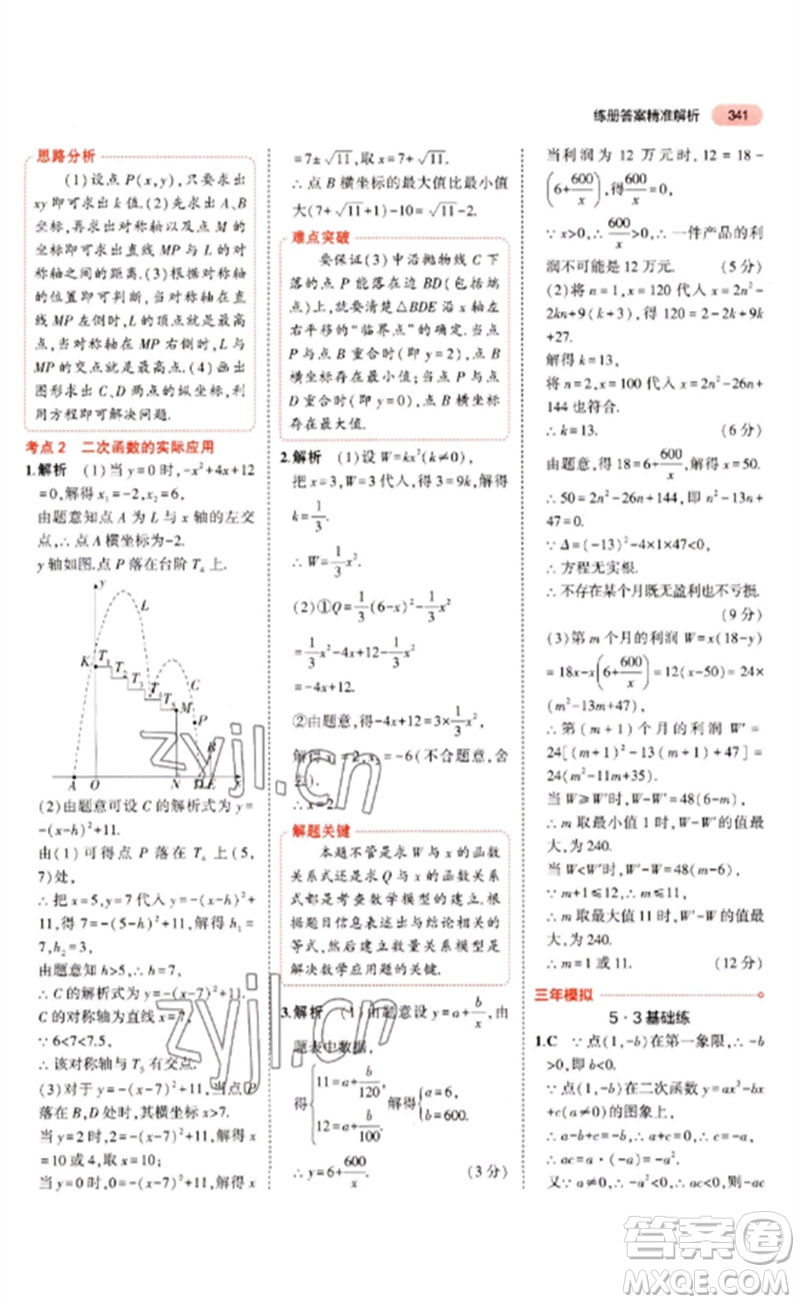 练册答案精准解析 341
思路分析
(1)设点 P(x,y),只要求出
xy 即可求出 k 值.(2)先求出 A、B
坐标,再求出对称轴以及点 M 的
坐标即可求出直线 MP 与 L 的对
称轴之间的距离.(3)根据对称轴
的位置即可判断,当对称轴在直
线 MP 左侧时,L 的顶点就是最高
点,当对称轴在 MP 右侧时,L 与
MP 的交点就是最高点.(4)画出
图形求出 C、D 两点的纵坐标,利
用方程即可解决问题.
考点 2 二次函数的实际应用
1.解析 (1)当 y=0 时,-x²+4x+12
=0,解得 x₁=-2,x₂=6,
由题意知点 A 为 L 与 x 轴的左交
点,∴点 A 横坐标为-2.
y 轴如图.点 P 落在台阶 T₄ 上.
y
L
K
T₁
T₂
T₃
T₄
T₅
C
M
P
B
A
O
N
D
E
x
(2)由题意可设 C 的解析式为 y=
-(x-h)²+11.
由(1)可得点 P 落在 T₄ 上(5,
7)处,
∴把 x=5,y=7 代入 y=-(x-h)²+
11,得 7=-(5-h)²+11,解得 h₁=
7,h₂=3,
由题意知 h>5,∴h=7,
∴C 的解析式为 y=-(x-7)²+11,
C 的对称轴为直线 x=7,
∵6<7<7.5,
∴该对称轴与 T₅ 台阶有交点.
(3)对于 y=-(x-7)²+11,当点落
在 B,D 处时,其横坐标 x>7.
当 y=2 时,2=-(x-7)²+11,解得 x
=10 或 4;
当 y=0 时,0=-(x-7)²+11,解得 x
=7±√11,取 x=7+√11,
∴点 B 横坐标的最大值比最小值
大(7+√11+1)-10=√11-2.
难点突破
要保证(3)中沿抛物线 C 下
落的点 P 能落在边 BD(包括端
点)上,就要清楚△BDE 沿 x 轴左
右平移的“临界点”的确定.当点
P 与点 B 重合时(即 y=2),点 B
横坐标存在最小值;当点 P 与点
D 重合时(即 y=0),点 B 横坐标
存在最大值.
2.解析 (1)设 W=kx²(k≠0),
把 x=3,W=3 代入,得 3=9k,解得
k=1/3.
∴W=1/3x².
(2)①Q=1/3(6-x)²-1/3x²
=1/3x²-4x+12-1/3x²
=-4x+12.
②由题意,得-4x+12=3×1/3x²,
解得 x₁=2,x₂=-6(不合题意,舍
去).
∴x=2.
解题关键
本题不管是求 W 与 x 的函数
关系式还是求 Q 与 x 的函数关系
式,都是考查数学模型的建立.根
据题目信息表述出与结论相关的
等式,然后建立数量关系模型是
解决数学应用题的关键.
3.解析 (1)由题意设 y=a+b/x,由
题表中数据,
得{11=a+b/120, 12=a+b/100. 解得{a=6, b=600.
∴y=6+600/x. (3 分)
当利润为 12 万元时,12=18-
(6+600/x),得600/x=0,
∵x>0,∴600/x>0,∴一件产品的利
润不可能是 12 万元. (5 分)
(2)将 n=1,x=120 代入 x=2n²-
2kn+9(k+3),得 120=2-2k+9k
+27.
解得 k=13,
将 n=2,x=100 代入 x=2n²-26n+
144 也符合.
∴k=13. (6 分)
由题意,得 18=6+600/x,解得 x=50.
∴50=2n²-26n+144,即 n²-13n+
47=0.
∵Δ=(-13)²-4×1×47<0,
∴方程无实根.
∴不存在某个月既无盈利也不亏损.
(9 分)
(3)第 m 个月的利润 W=x(18-y)
=18x-x(6+600/x)=12(x-50)=24×
(m²-13m+47),
∴第(m+1)个月的利润 W'=
24[(m+1)²-13(m+1)+47]=
24(m²-11m+35).
当 W≥W'时,W-W'=48(6-m),
∴m 取最小值 1 时,W-W'的值最
大,为 240.
当 W<W'时,W'-W=48(m-6),
∵m+1≤12,∴m≤11,
∴m 取最大值 11 时,W'-W 的值最
大,为 240.
∴m=1 或 11. (12 分)
三年模拟
5·3基础练
1.C ∵点(1,-b)在第一象限,∴-b
>0,即 b<0.
∵点(-1,0)在二次函数 y=ax²-bx
+c(a≠0)的图象上,
∴a+b+c=0,∴a+c=-b>0.
∴ac=a·(-a-b)=-a²-ab,
又∵a≠0,∴ac<-ab,即-ab>ac
zyjl.cn
zyjl.cn
答案圈
MXQE.COM